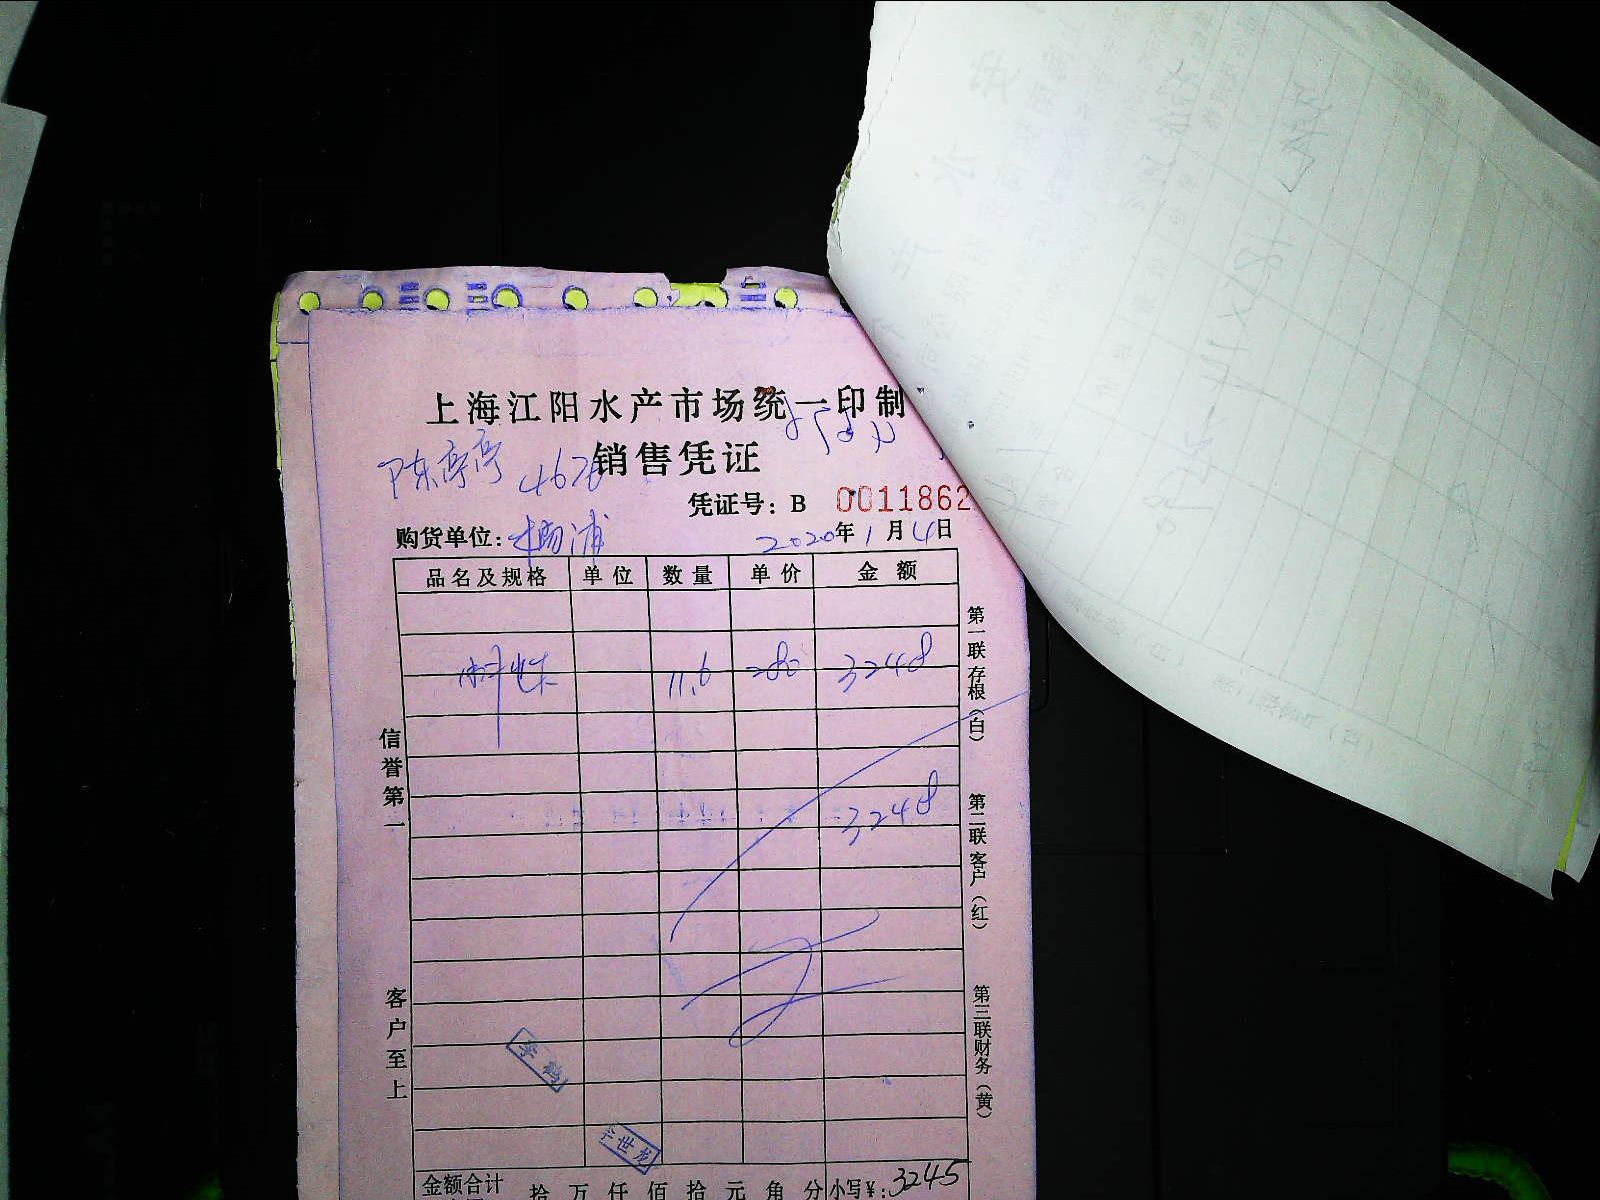 上海江阳水产市场统一印制
陈亭亭 销售凭证
凭证号：B 0011862
购货单位：杨浦 2020年1月4日
品名及规格 单位 数量 单价 金额
11.6 280 3248
3248
信誉第一
客户至上
第一联存根（白）
第二联客户（红）
第三联财务（黄）
李鹤
李世龙
金额合计 拾 万 仟 佰 拾 元 角 分 小写¥：3245